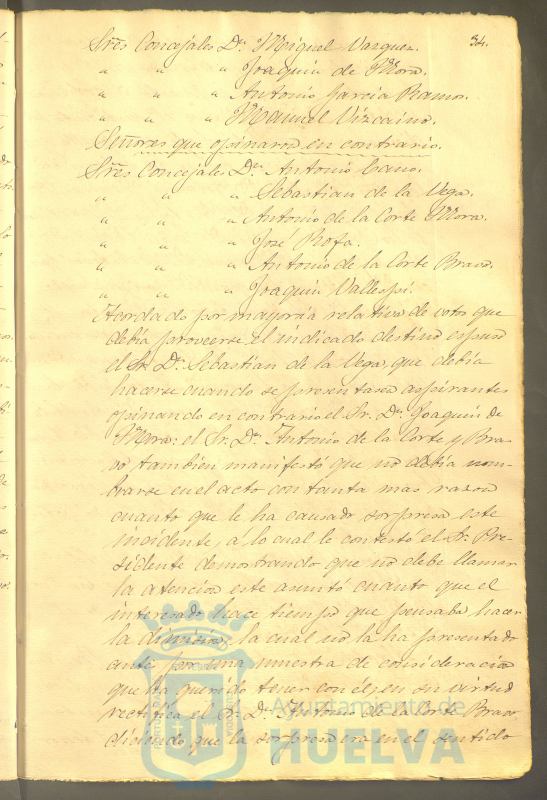 34.
Sres Concejales Dn Miguel Vazquez.
" " " Joaquin de Mora.
" " " Antonio Garcia Ramos.
" " " Manuel Vizcaino.
Señores que opinaron en contrario.
Sres Concejales Dn Antonio Cano.
" " " Sebastian de la Vega.
" " " Antonio de la Corte Mora.
" " " José Rofa.
" " " Antonio de la Corte Bravo.
" " " Joaquin Vallespi.
Acordado por mayoria relativa de votos que
debia proveerse el indicado destino espuso
el Sr. Dn Sebastian de la Vega, que debia
hacerse cuando se presentasen aspirantes
opinando en contrario el Sr. Dn Joaquin de
Mora: el Sr. Dn Antonio de la Corte y Bra-
vo tambien manifestó que no debia nom-
brarse en el acto con tanta mas razon
cuanto que le ha causado sorpresa este
incidente, á lo cual le contestó el Sr. Pre-
sidente demostrando que no debe llamar
la atencion este asunto cuanto que el
interesado hace tiempo que pensaba hacer
la dimision, la cual no la ha presentado
antes por una muestra de consideracion
que ha querido tener con él; en su virtud
rectifica el Sr. Dn Antonio de la Corte Bravo
diciendo que la sorpresa era en el sentido
Ayuntamiento de
HUELVA